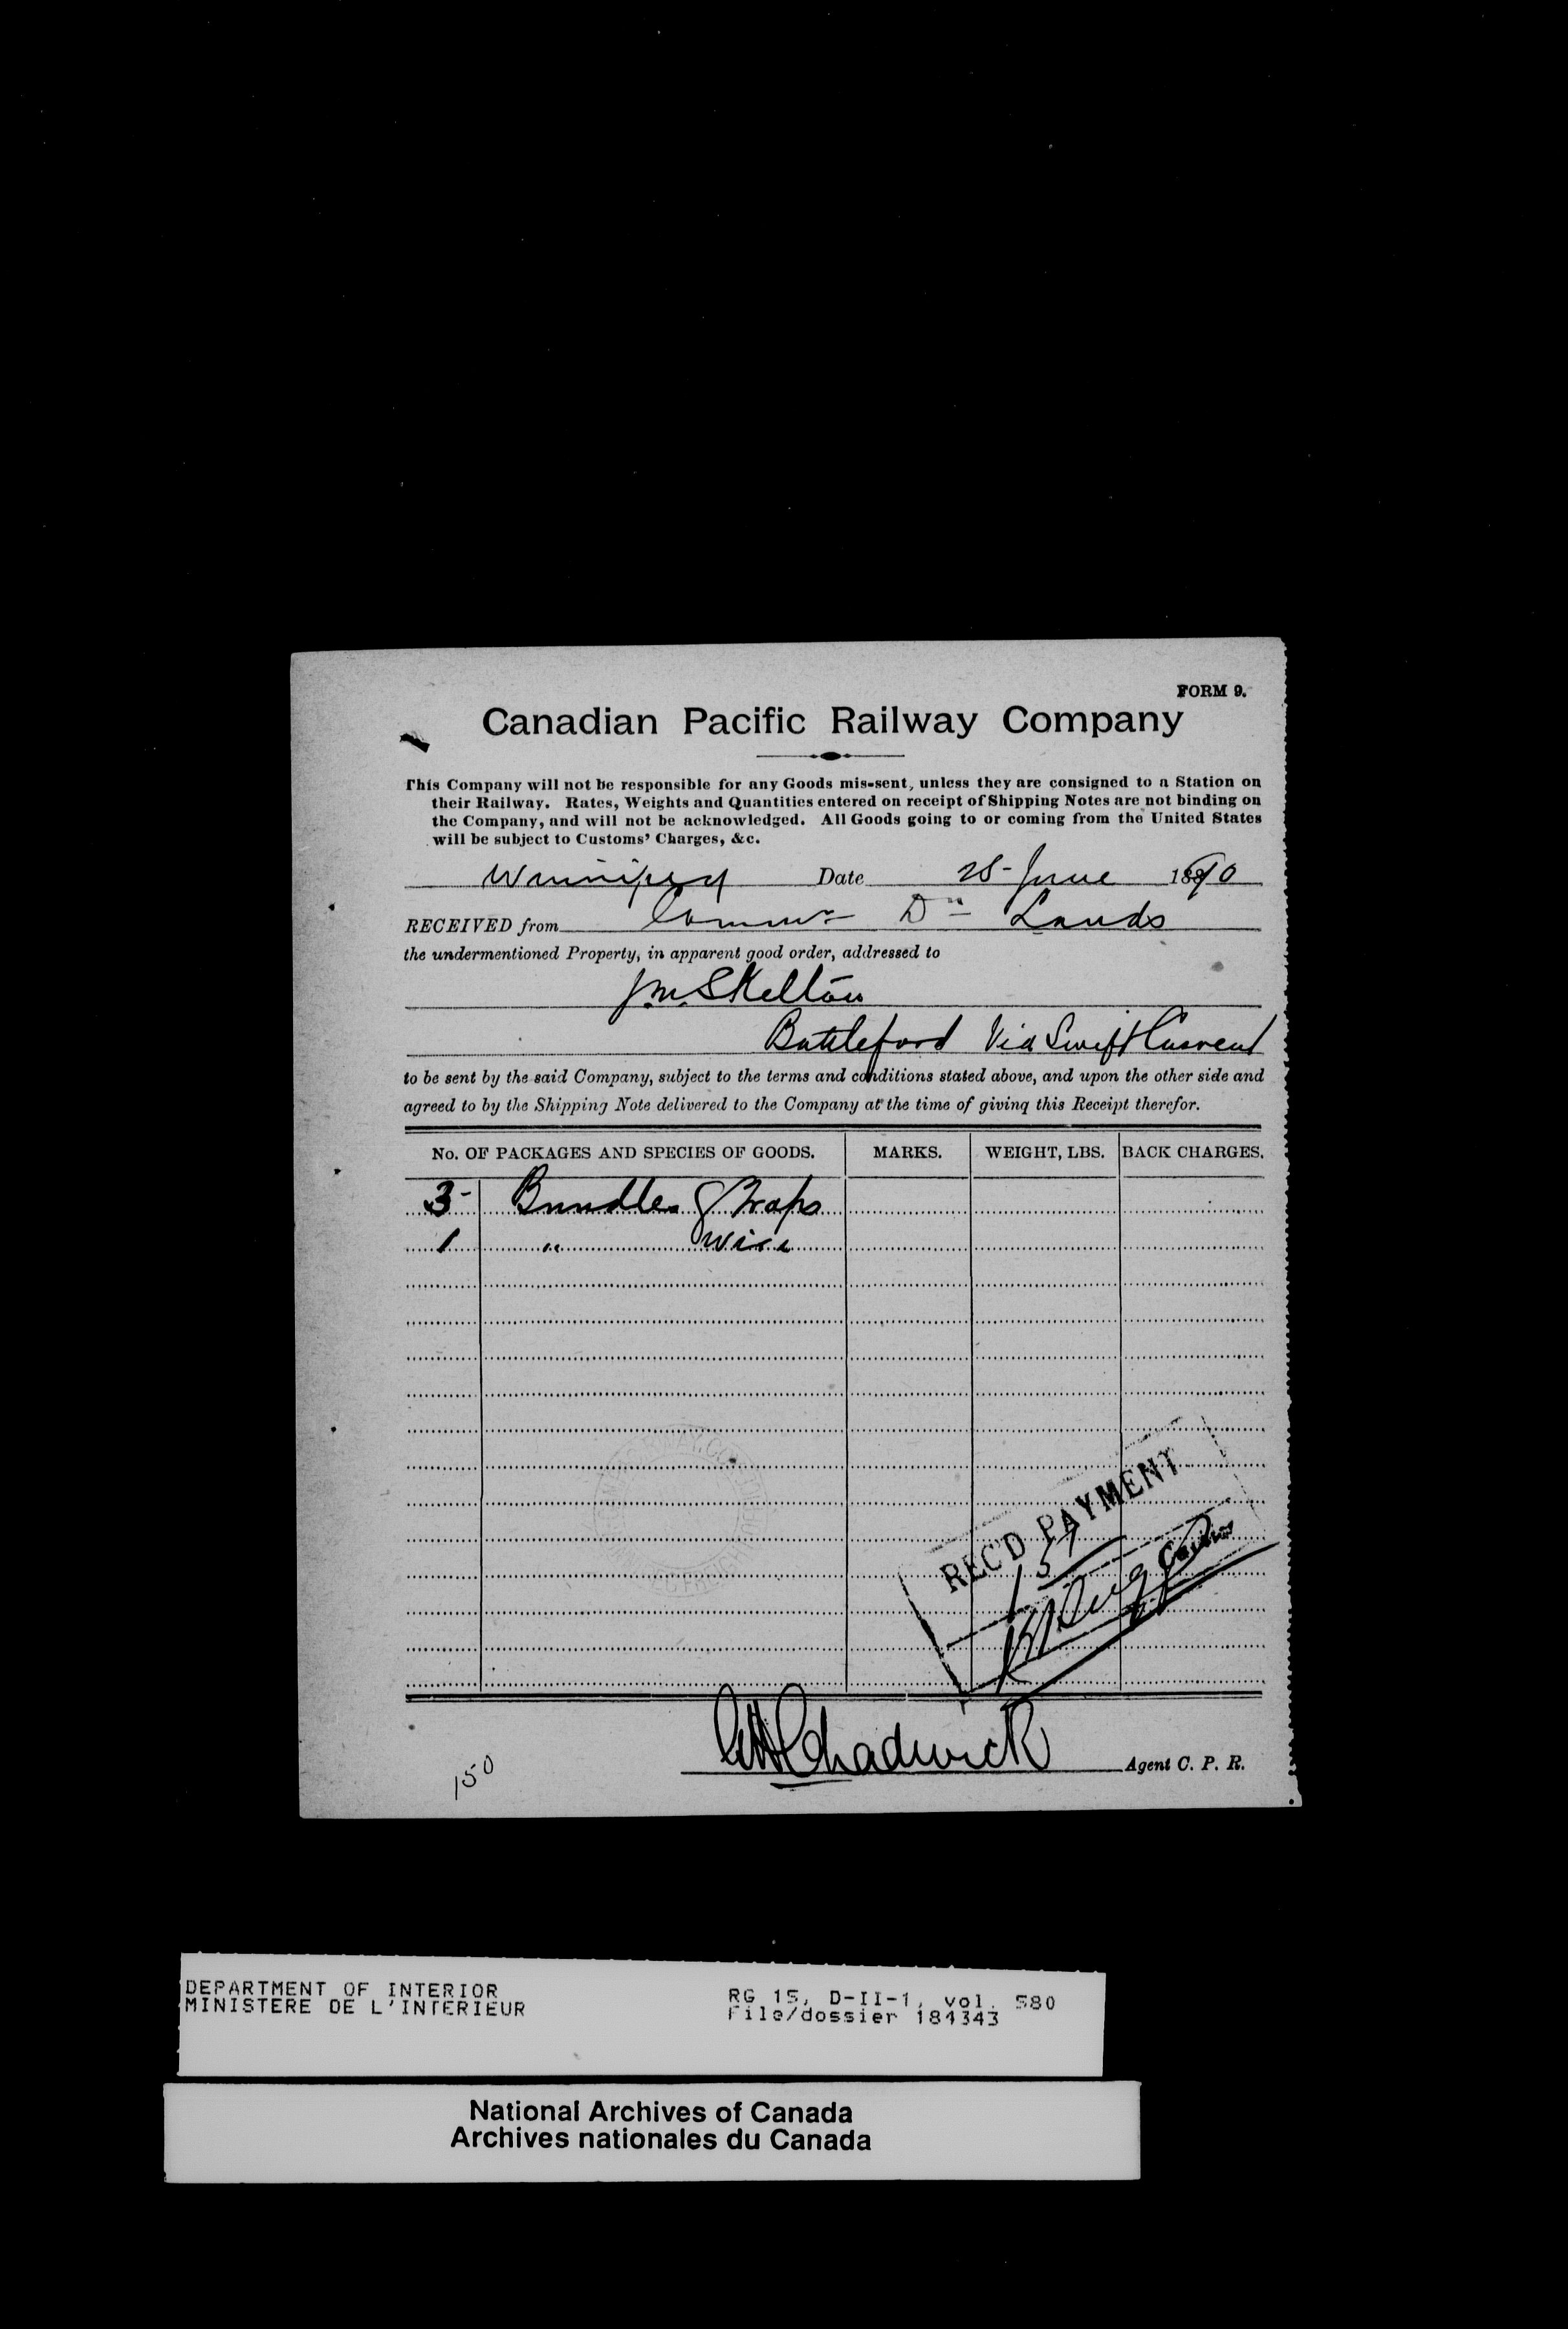 FORM 9.
Canadian Pacific Railway Company
This Company will not be responsible for any Goods mis-sent, unless they are consigned to a Station on
their Railway. Rates, Weights and Quantities entered on receipt of Shipping Notes are not binding on
the Company, and will not be acknowledged. All Goods going to or coming from the United States
will be subject to Customs' Charges, &c.
Winnipeg Date 28 June 1890
RECEIVED from Commr Dn Lands
the undermentioned Property, in apparent good order, addressed to
J.M. Skelton
Battleford Via Swift Current
to be sent by the said Company, subject to the terms and conditions stated above, and upon the other side and
agreed to by the Shipping Note delivered to the Company at the time of giving this Receipt therefor.
No. OF PACKAGES AND SPECIES OF GOODS. MARKS. WEIGHT, LBS. BACK CHARGES.
3 Bundles
1 " Wire
REC'D PAYMENT
Cashier
Chadwick Agent C. P. R.
150
DEPARTMENT OF INTERIOR
MINISTERE DE L'INTERIEUR
RG 15, D-II-1, vol. 580
File/dossier 184343
National Archives of Canada
Archives nationales du Canada